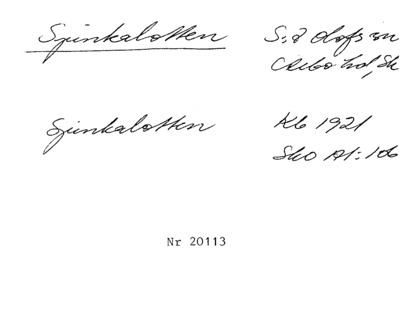 Spinkalotten S:a Olofs sn
hd, Sk
Spinkalotten Kb 1921
Sko A1:106
Nr 20113